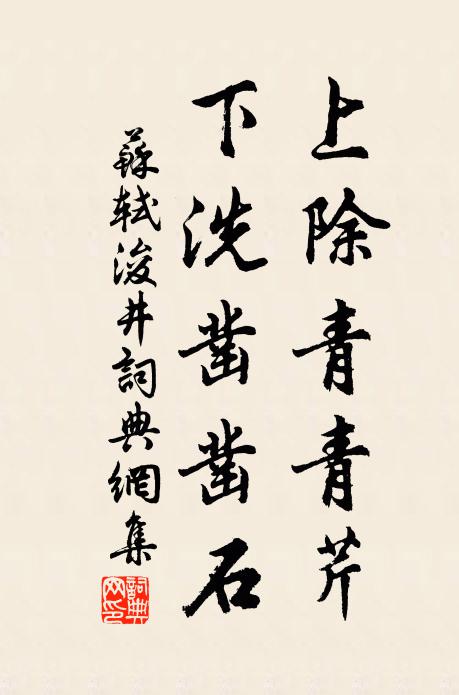 上除青青芹
下洗凿凿石
蘇軾浚井詞典網集
詞典网印